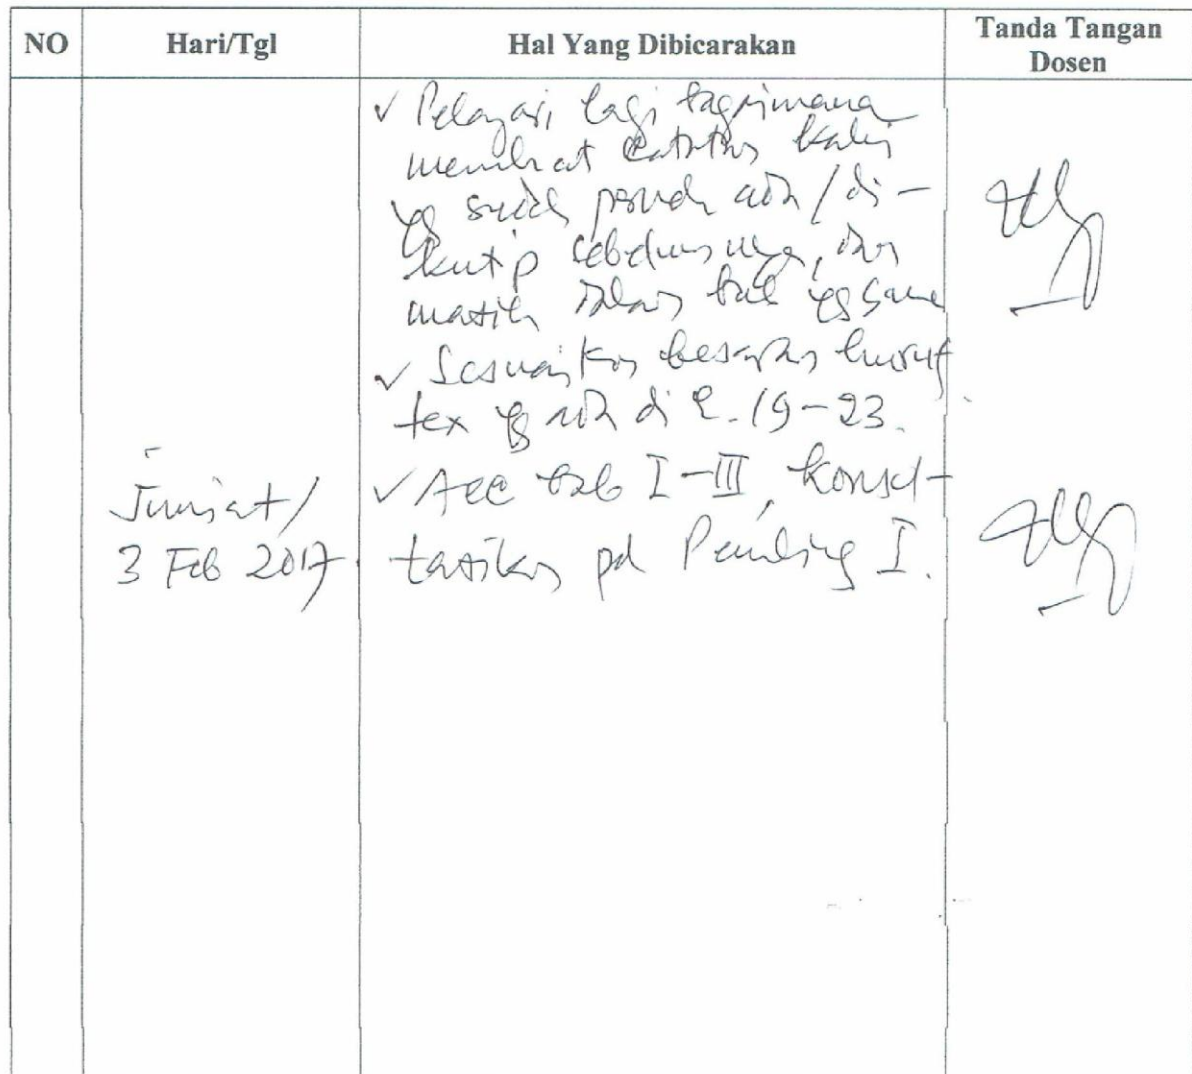 NO Hari/Tgl Hal Yang Dibicarakan Tanda Tangan
Dosen
✓ Pelajari lagi bagaimana
membuat catatan kaki
yg sudah pernah ada / di-
kutip sebelumnya, dan
masih dalam bab yg sama
✓ Sesuaikan besarnya huruf
tex yg ada di h. 19-23.
Jum'at/ ✓ Acc bab I-III, konsul-
3 Feb 2017 tasikan pd Pembimbing I.